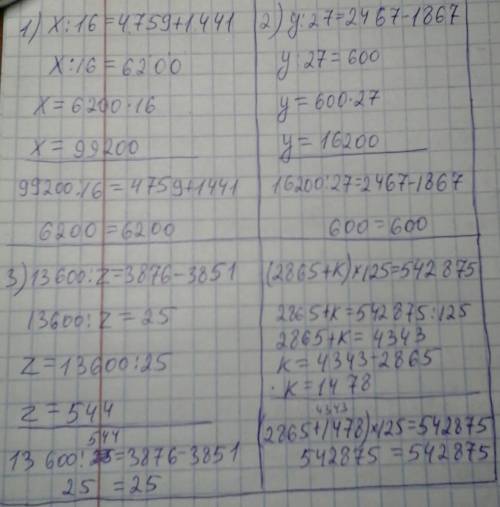 1) x:16=4759+1441
x:16=6200
x=6200·16
x=99200
99200:16=4759+1441
6200=6200
2) y:27=2467-1867
y:27=600
y=600·27
y=16200
16200:27=2467-1867
600=600
3) 13600:z=3876-3851
13600:z=25
z=13600:25
z=544
544
13600:=3876-3851
25=25
(2865+k)×125=542875
2865+k=542875:125
2865+k=4343
k=4343-2865
k=1478
4343
(2865+1478)×125=542875
542875=542875